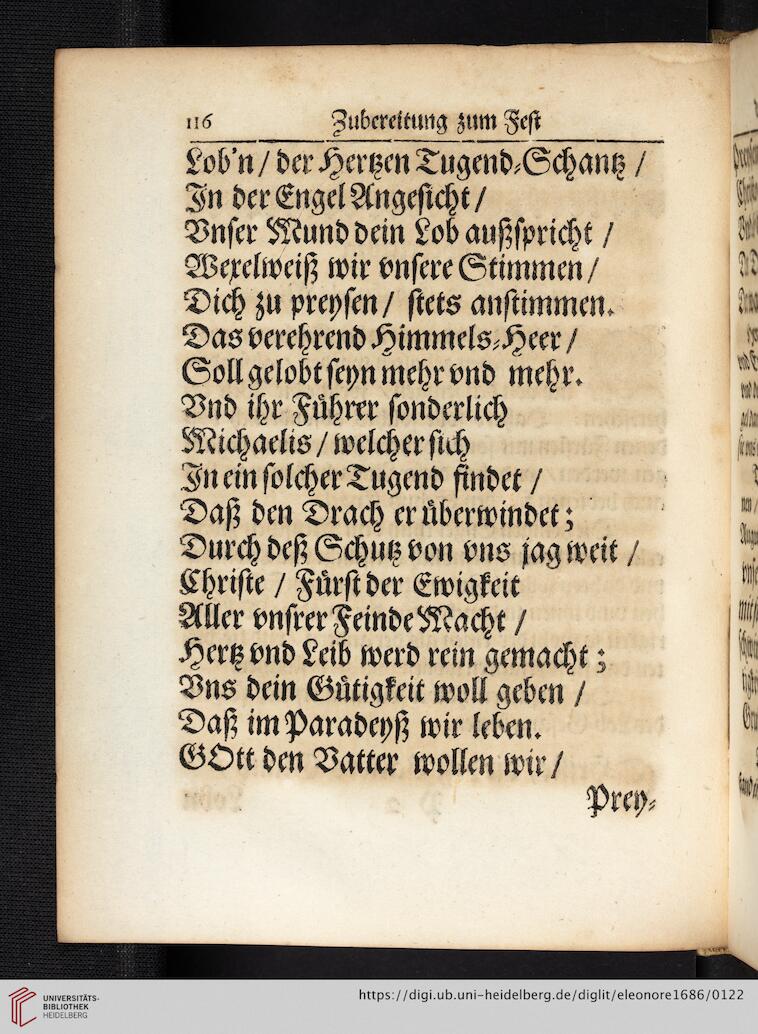 116 Zubereitung zum Fest
Lob'n / der Hertzen Tugend-Schantz /
In der Engel Angesicht /
Vnser Mund dein Lob außspricht /
Wexelweiß wir vnsere Stimmen /
Dich zu preysen / stets anstimmen.
Das verehrend Himmels-Heer /
Soll gelobt seyn mehr vnd mehr.
Vnd ihr Führer sonderlich
Michaelis / welcher sich
In ein solcher Tugend findet /
Daß den Drach er überwindet;
Durch deß Schutz von vns jag weit /
Christe / Fürst der Ewigkeit
Aller vnsrer Feinde Macht /
Hertz vnd Leib werd rein gemacht;
Vns dein Gütigkeit woll geben /
Daß im Paradeyß wir leben.
GOtt den Vatter wollen wir /
Prey-
UNIVERSITÄTS-
BIBLIOTHEK
HEIDELBERG
https://digi.ub.uni-heidelberg.de/diglit/eleonore1686/0122